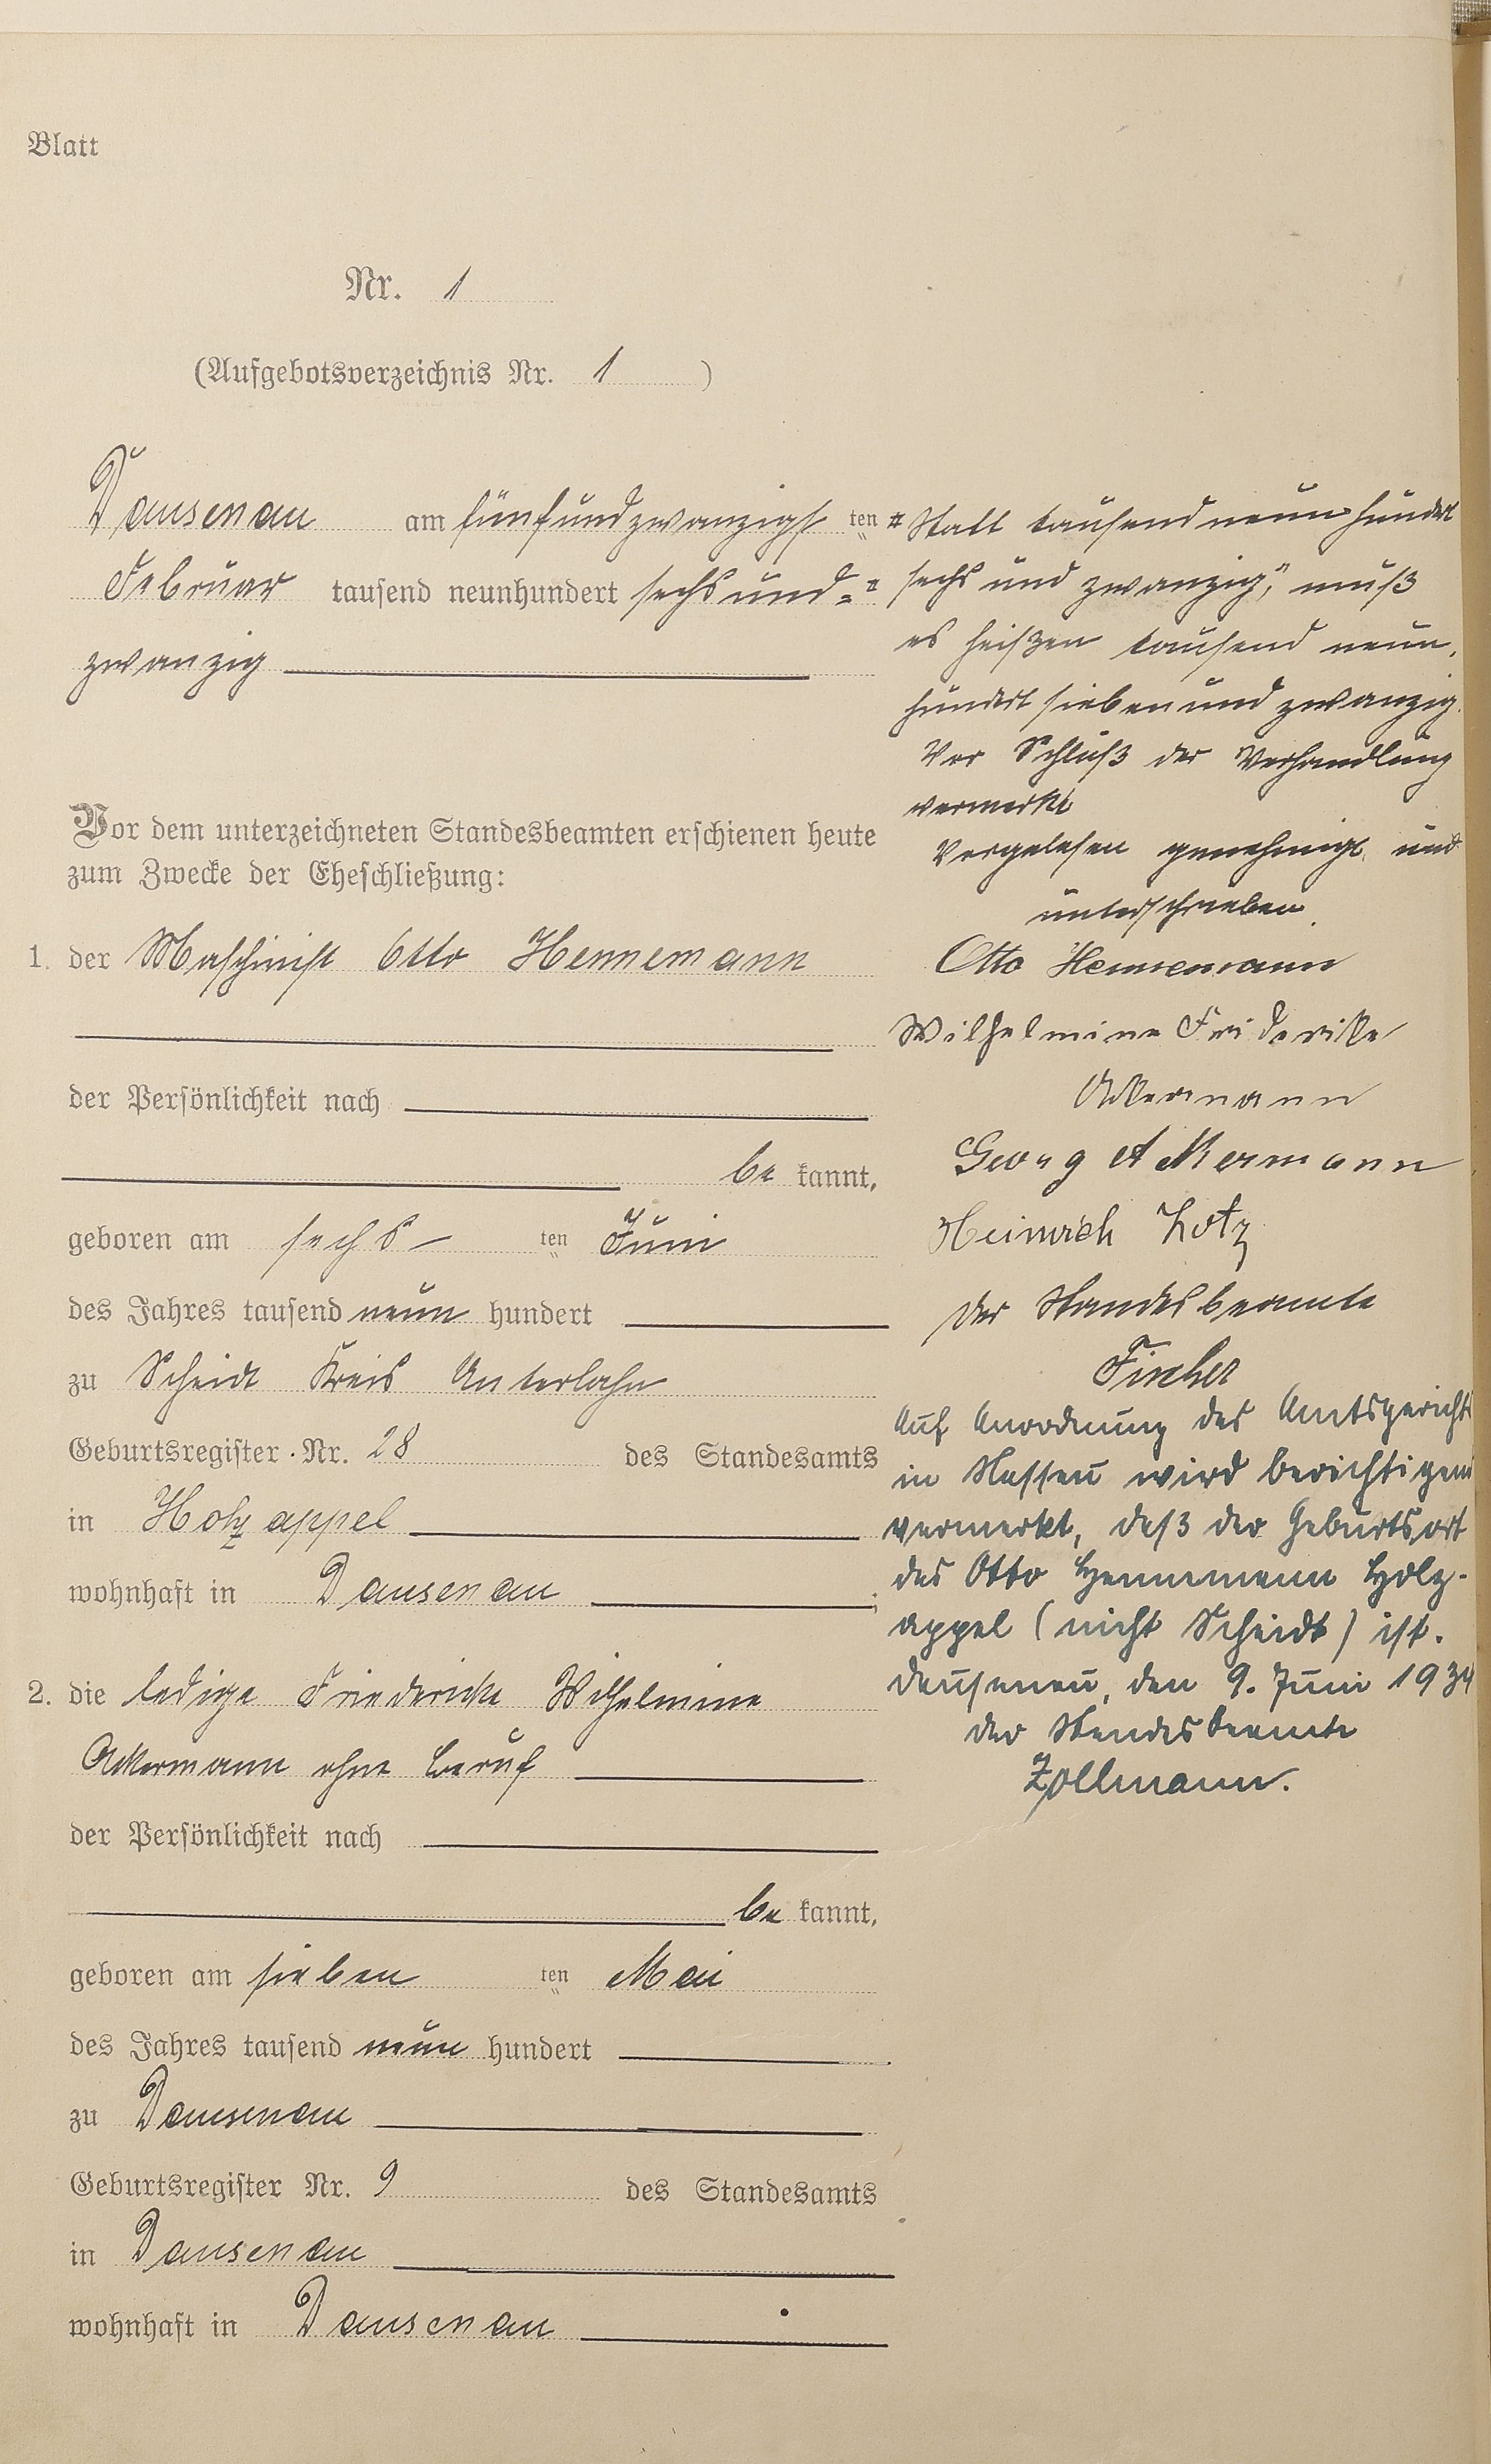 Blatt
Nr. 1
(Aufgebotsverzeichnis Nr. 1 )
Dausenau am fünfundzwanzigst ten
Februar tausend neunhundert sechsund=
zwanzig
Vor dem unterzeichneten Standesbeamten erschienen heute
zum Zwecke der Eheschließung:
1. der Maschinist Otto Hennemann
der Persönlichkeit nach
be kannt,
geboren am sechs ten Juni
des Jahres tausend neun hundert
zu Scheidt Kreis Unterlahn
Geburtsregister-Nr. 28 des Standesamts
in Holzappel
wohnhaft in Dausenau;
2. die ledige Friedericke Wilhelmine
Ackermann ohne Beruf
der Persönlichkeit nach
be kannt,
geboren am sieben ten Mai
des Jahres tausend neun hundert
zu Dausenau
Geburtsregister Nr. 9 des Standesamts
in Dausenau
wohnhaft in Dausenau
# Statt tausendneunhundert
sechs und zwanzig", muß
es heißen tausend neun,
hundert siebenundzwanzig.
Vor Schluß der Verhandlung
vermerkt
Vorgelesen genehmigt und
unterschrieben.
Otto Hennemann
Wilhelmine Friderike
Ackermann
Georg Akermann
Heinrich Lotz
Der Standesbeamte
Fischer
Auf Anordnung des Amtsgerichts
in Nassau wird berichtigend
vermerkt, daß der Geburtsort
des Otto Hennemann Holz-
appel (nicht Scheidt) ist.
Dausenau, den 9. Juni 1934
Der Standesbeamte
Zollmann.